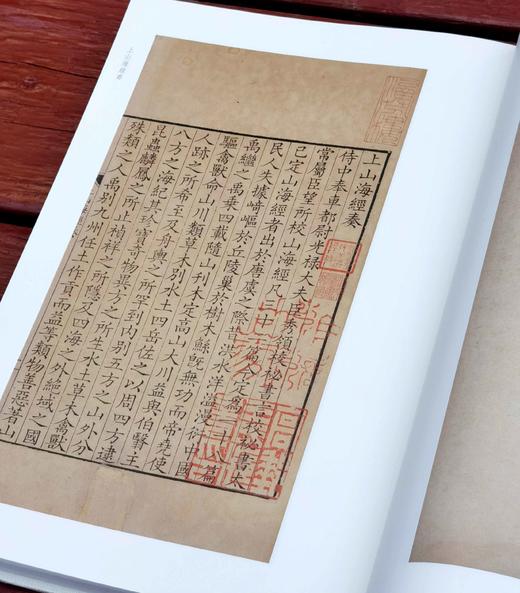 上山海經奏
上山海經奏
侍中奉車都尉光禄大夫臣秀領校祕書言校祕書太
常屬臣望所校山海經凡三十二篇今定爲一十八篇
已定山海經者出於唐虞之際昔洪水洋溢漫衍中國
民人失據崎嶇於丘陵巢於樹木鯀旣無功而帝堯使
禹繼之禹乘四載隨山刋木定高山大川益與伯翳主
驅禽獸命山川類草木别水土四岳佐之以周四方逮
人跡之所希至及舟輿之所罕到内别五方之山外分
八方之海紀其珍寳奇物異方之所生水土草木禽獸
昆蟲麟鳳之所止禎祥之所隱及四海之外絶域之國
殊類之人禹别九州任土作貢而益等類物善惡著山